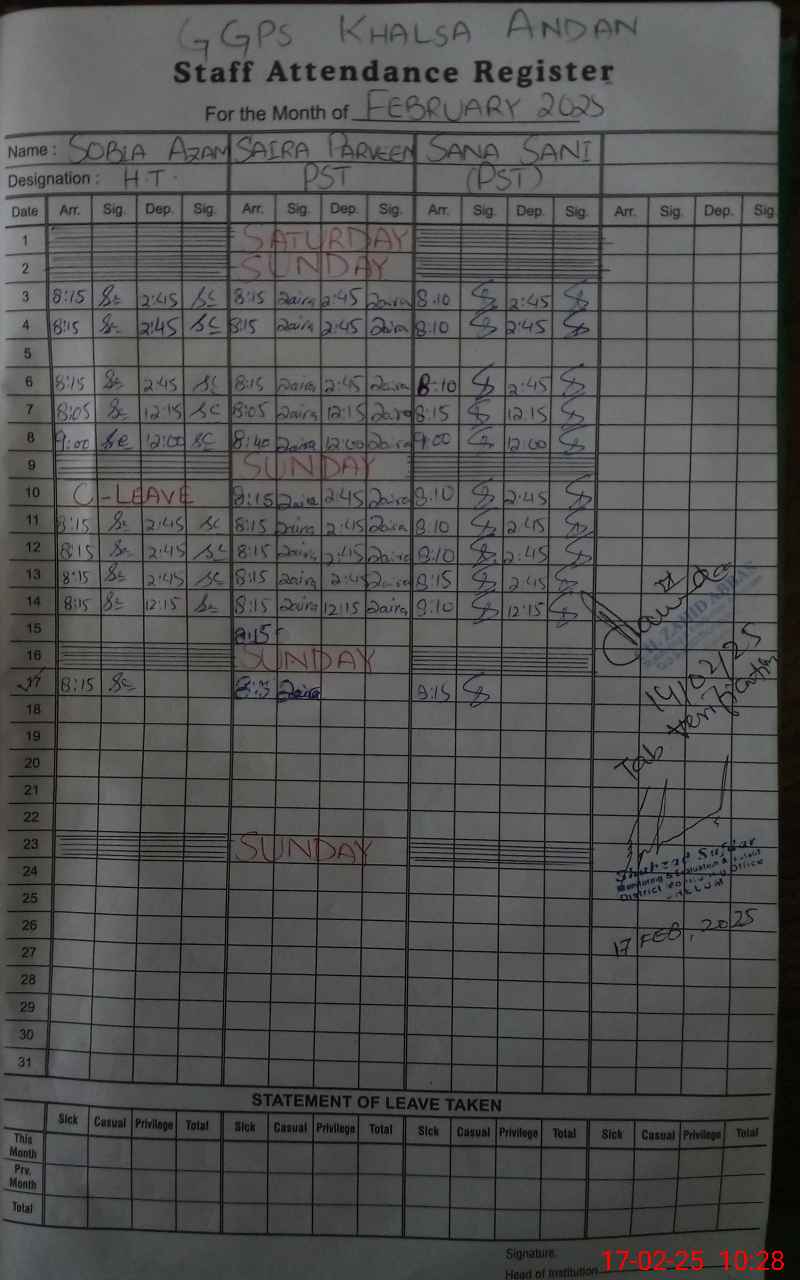 GGPS KHALSA ANDAN
Staff Attendance Register
For the Month of FEBRUARY 2025
Name : SOBIA AZAM SAIRA PARVEEN SANA SANI
Designation : H.T. PST (PST)
Date Arr. Sig. Dep. Sig. Arr. Sig. Dep. Sig. Arr. Sig. Dep. Sig. Arr. Sig. Dep. Sig.
1 SATURDAY
2 SUNDAY
3 8:15 2:45 8:15 Saira 2:45 Saira 8:10 2:45
4 8:15 2:45 8:15 Saira 2:45 Saira 8:10 2:45
5
6 8:15 2:45 8:15 Saira 2:45 Saira 8:10 2:45
7 8:05 12:15 8:05 Saira 12:15 Saira 8:15 12:15
8 9:00 12:00 8:40 Saira 12:00 Saira 9:00 12:00
9 SUNDAY
10 C-LEAVE 8:15 Saira 2:45 Saira 8:10 2:45
11 8:15 2:45 8:15 Saira 2:45 Saira 8:10 2:45
12 8:15 2:45 8:15 Saira 2:45 Saira 8:10 2:45
13 8:15 2:45 8:15 Saira 2:45 Saira 8:15 2:45
14 8:15 12:15 8:15 Saira 12:15 Saira 8:10 12:15
15 8:15
16 SUNDAY
17 8:15 Saira 8:15
18
19
20
21
22
23 SUNDAY
24
25
26
27
28
29
30
31
ZAHID ABBAS
14/02/25
Tab Verification
District Monitoring Office
JHELUM
17 FEB, 2025
STATEMENT OF LEAVE TAKEN
Sick Casual Privilege Total Sick Casual Privilege Total Sick Casual Privilege Total Sick Casual Privilege Total
This Month
Prv. Month
Total
Signature.
Head of Institution
17-02-25 10:28